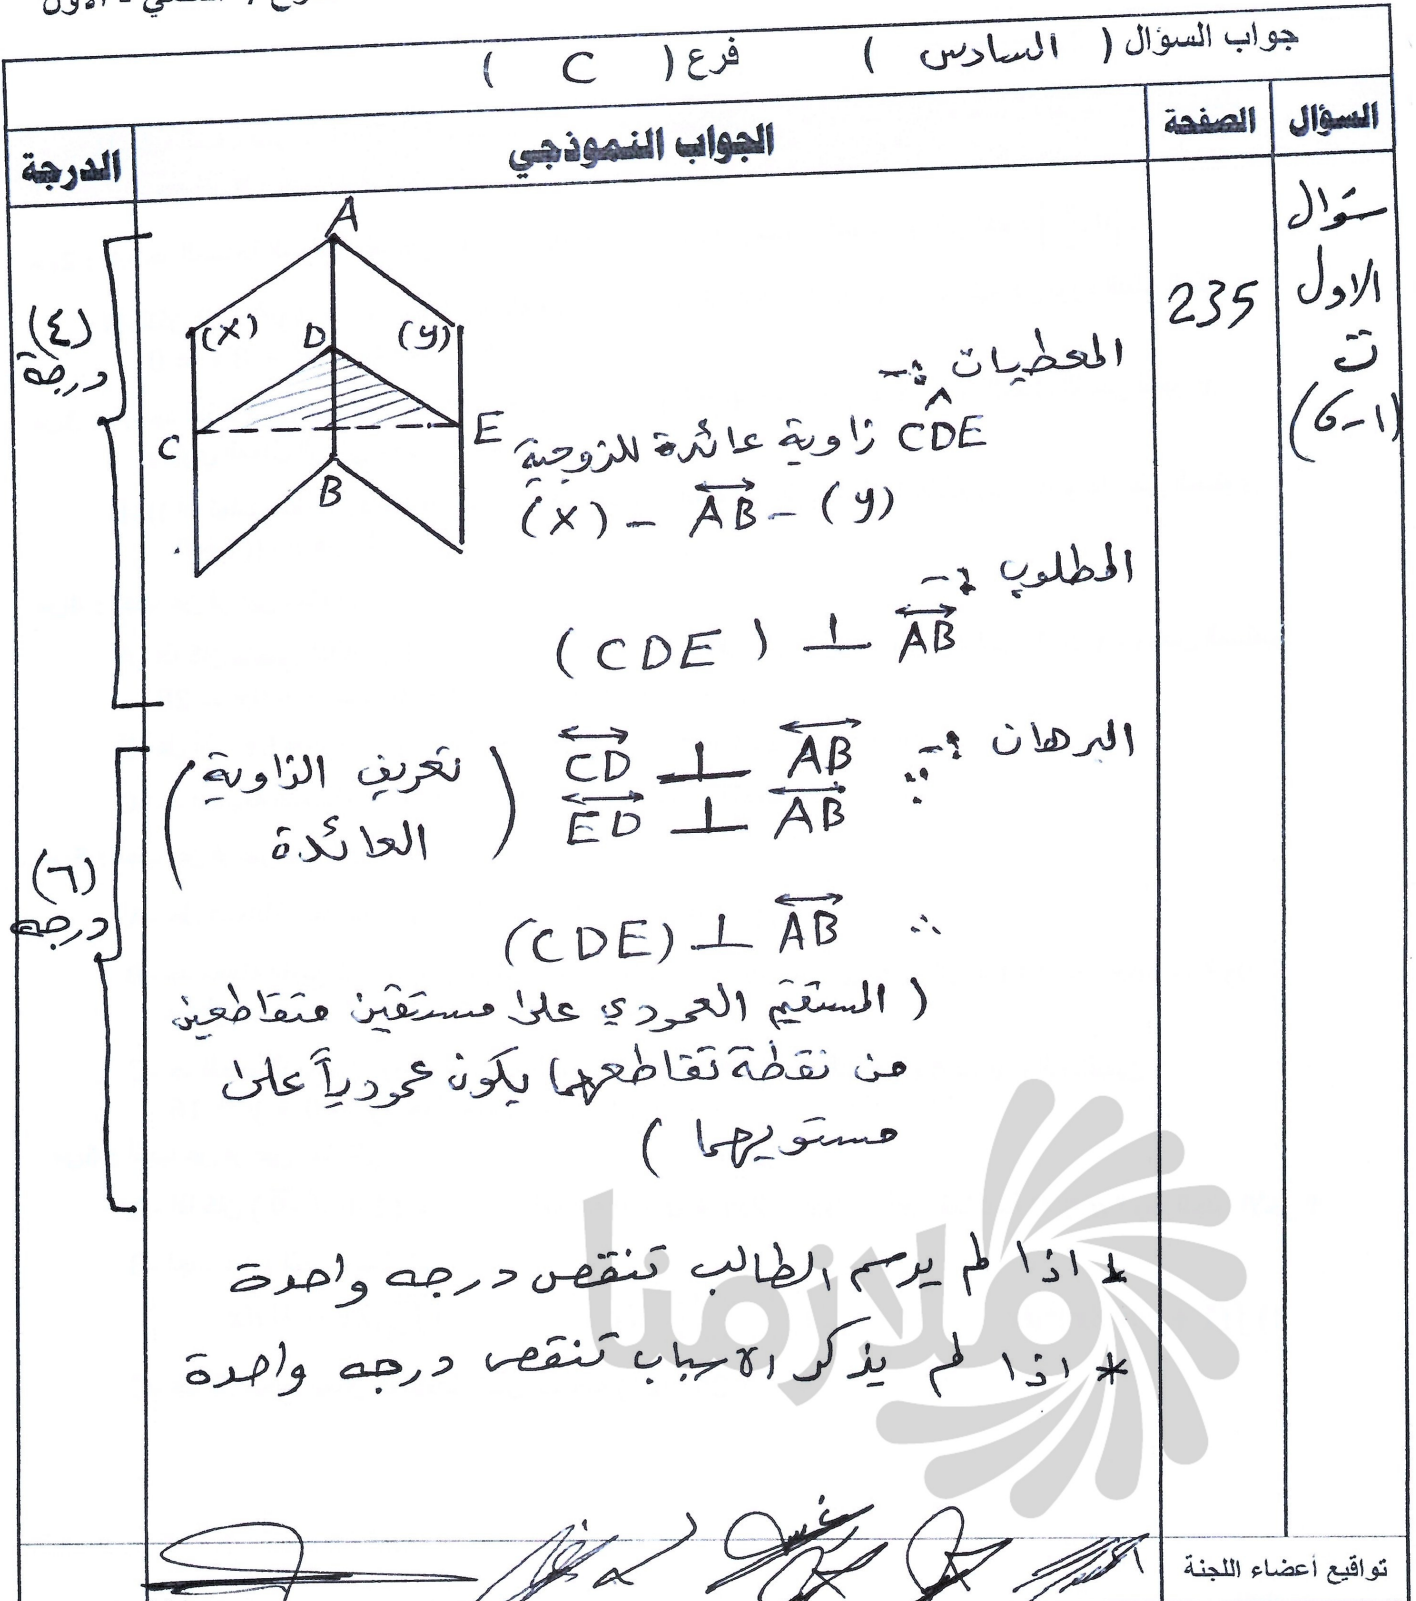 جواب السؤال ( السادس ) فرع ( C )
السؤال
الصفحة
الجواب النموذجي
الدرجة
سؤال
الاول
ت
(6-1)
235
A
(X)
D
(y)
C
E
B
المعطيات :-
CDE زاوية عائدة للزوجية
(X) - AB - (y)
المطلوب :-
(CDE) ⊥ AB
(٤)
درجة
البرهان :-
∵ CD ⊥ AB
ED ⊥ AB
( تعريف الزاوية
العائدة )
∴ (CDE) ⊥ AB
( المستقيم العمودي على مستقين متقاطعين
من نقطة تقاطعهما يكون عمودياً على
مستويهما )
(٦)
درجه
* اذا لم يرسم الطالب تنقص درجه واحدة
* اذا لم يذكر الاسباب تنقص درجه واحدة
ملازمنا
تواقيع أعضاء اللجنة